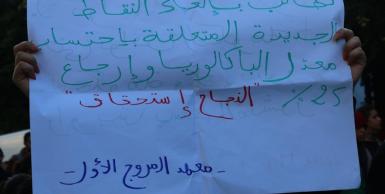 نطالب بإلغاء النقاط
الجديدة المتعلقة بإحتساب
معدل الباكالوريا وإرجاع
25%
"النجاح إستحقاق"
- معهد المروج الأول -